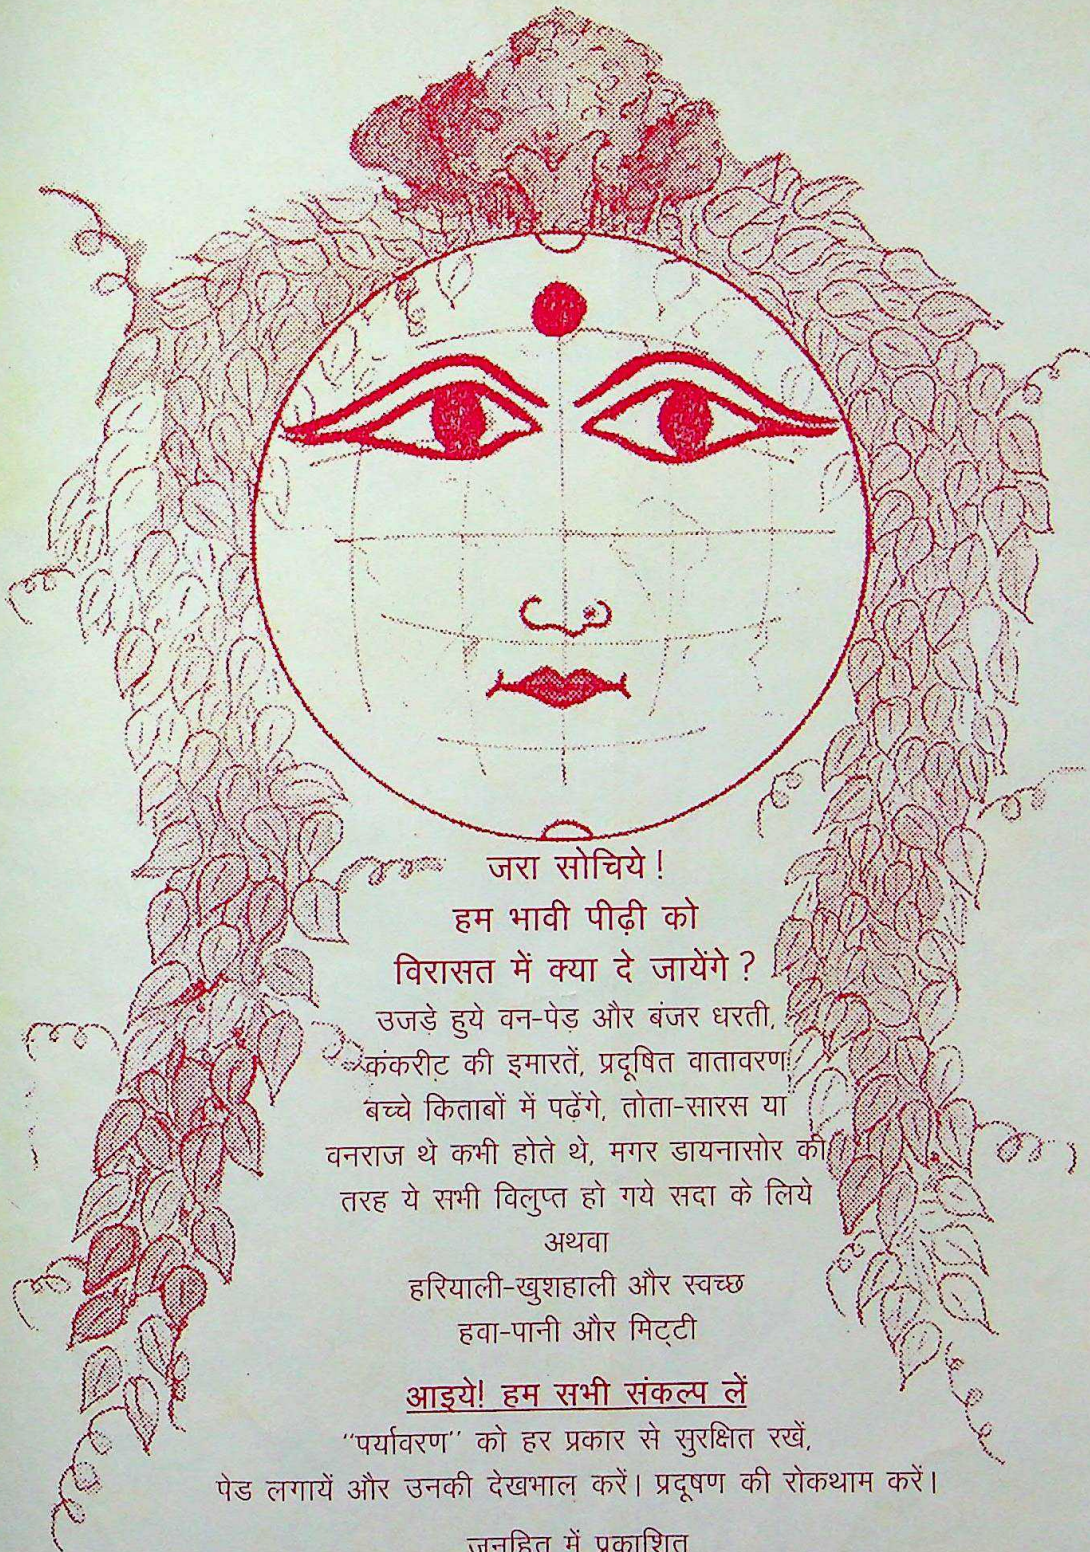 जरा सोचिये !
हम भावी पीढ़ी को
विरासत में क्या दे जायेंगे ?
उजड़े हुये वन-पेड़ और बंजर धरती,
कंकरीट की इमारतें, प्रदूषित वातावरण
बच्चे किताबों में पढ़ेंगे, तोता-सारस या
वनराज थे कभी होते थे, मगर डायनासोर की
तरह ये सभी विलुप्त हो गये सदा के लिये
अथवा
हरियाली-खुशहाली और स्वच्छ
हवा-पानी और मिट्टी
आइये! हम सभी संकल्प लें
"पर्यावरण" को हर प्रकार से सुरक्षित रखें,
पेड लगायें और उनकी देखभाल करें। प्रदूषण की रोकथाम करें।
जनहित में प्रकाशित